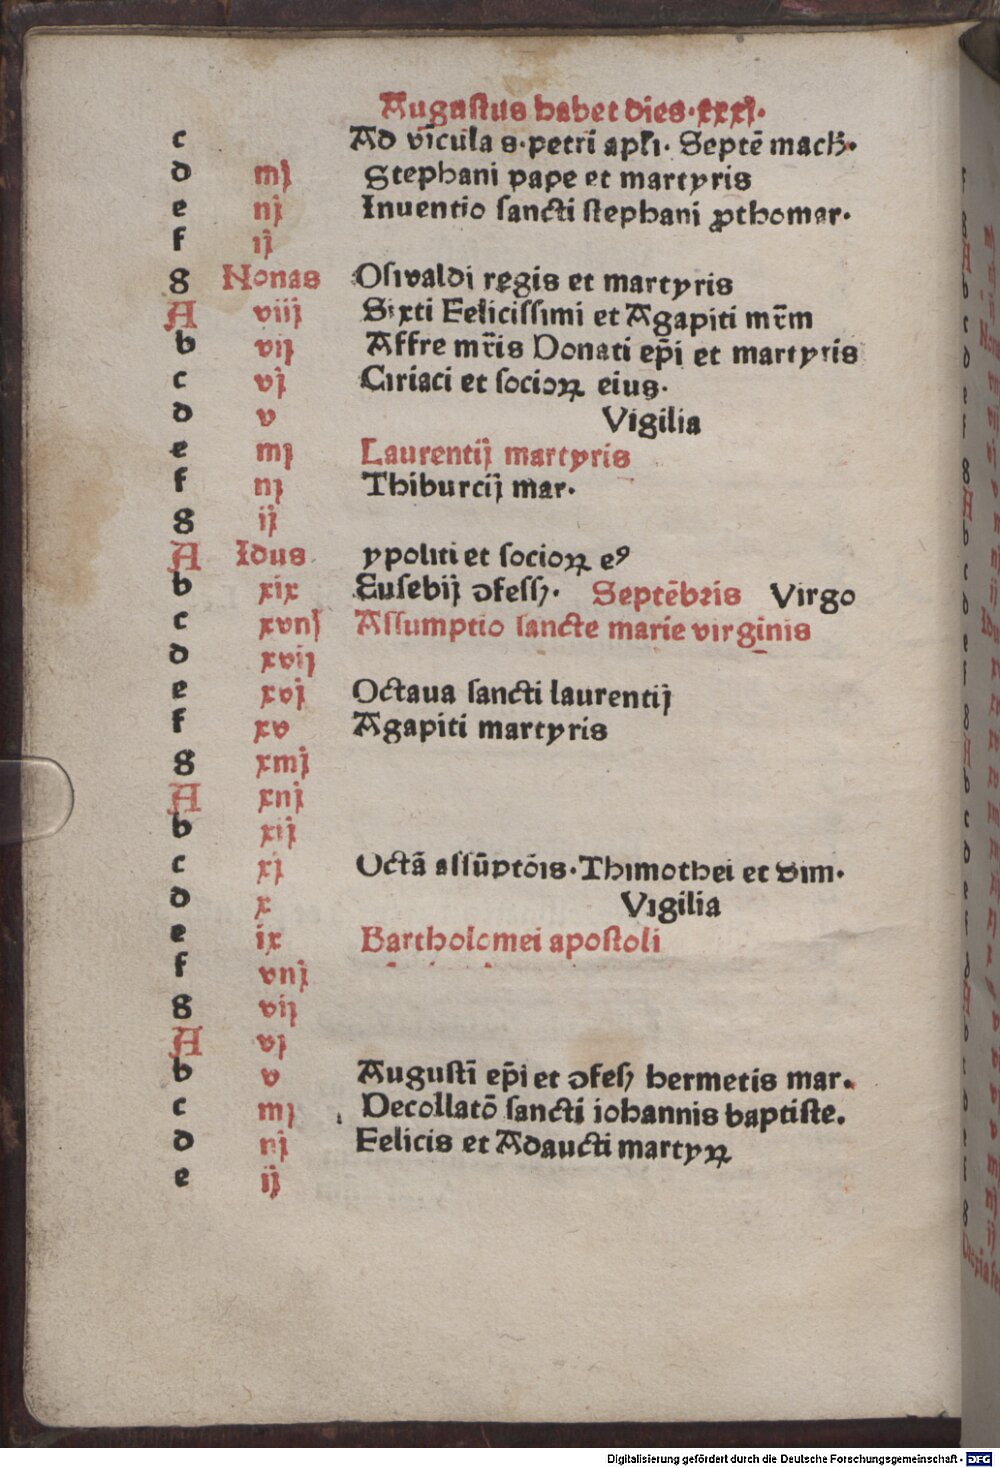 Augustus habet dies·xxxj·
c Ad vīcula s·petri apl̄i· Septē mach̄·
d iiij Stephani pape et martyris
e iij Inuentio sancti stephani ꝓthomar·
f ij
g Nonas Osswaldi regis et martyris
A viij Sixti Felicissimi et Agapiti mr̄m
b vij Affre mr̄is Donati ep̄i et martyris
c vj Ciriaci et socioꝝ eius·
d v Vigilia
e iiij Laurentij martyris
f iij Thiburcij mar·
g ij
A Idus ypoliti et socioꝝ eꝰ
b xix Eusebij ↄfess̄· Septēbris Virgo
c xviij Assumptio sancte marie virginis
d xvij
e xvj Octaua sancti laurentij
f xv Agapiti martyris
g xiiij
A xiij
b xij
c xj Octā assūptōis·Thimothei et sim·
d x Vigilia
e ix Bartholomei apostoli
f viij
g vij
A vj
b v Augustī ep̄i et ↄfess̄ hermetis mar.
c iiij Decollatō sancti iohannis baptiste.
d iij Felicis et Adaucti martyꝝ
e ij
Digitalisierung gefördert durch die Deutsche Forschungsgemeinschaft - DFG